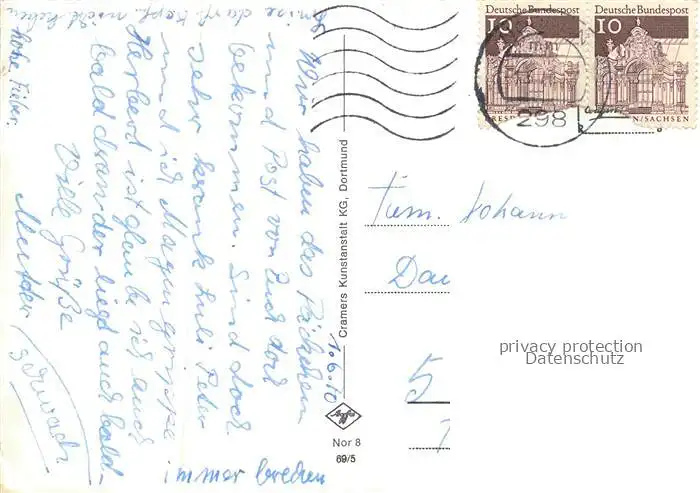 Wir haben das Päckchen
und Post von Euch doch
bekommen. Sind doch
sehr krank
und ich Magengrippe
Herbert ist glaube ich auch
bald dran der liegt auch bald-
Viele Grüße
Mutter
schwach
immer brechen
hohe Fieber.
darf Kopf nicht heben
1.6.70
Cramers Kunstanstalt KG, Dortmund
Agfa
Nor 8
69/5
Deutsche Bundespost
10
Deutsche Bundespost
10
298
DRESD
N/SACHSEN
Fam. Johann
Dau
5
privacy protection
Datenschutz